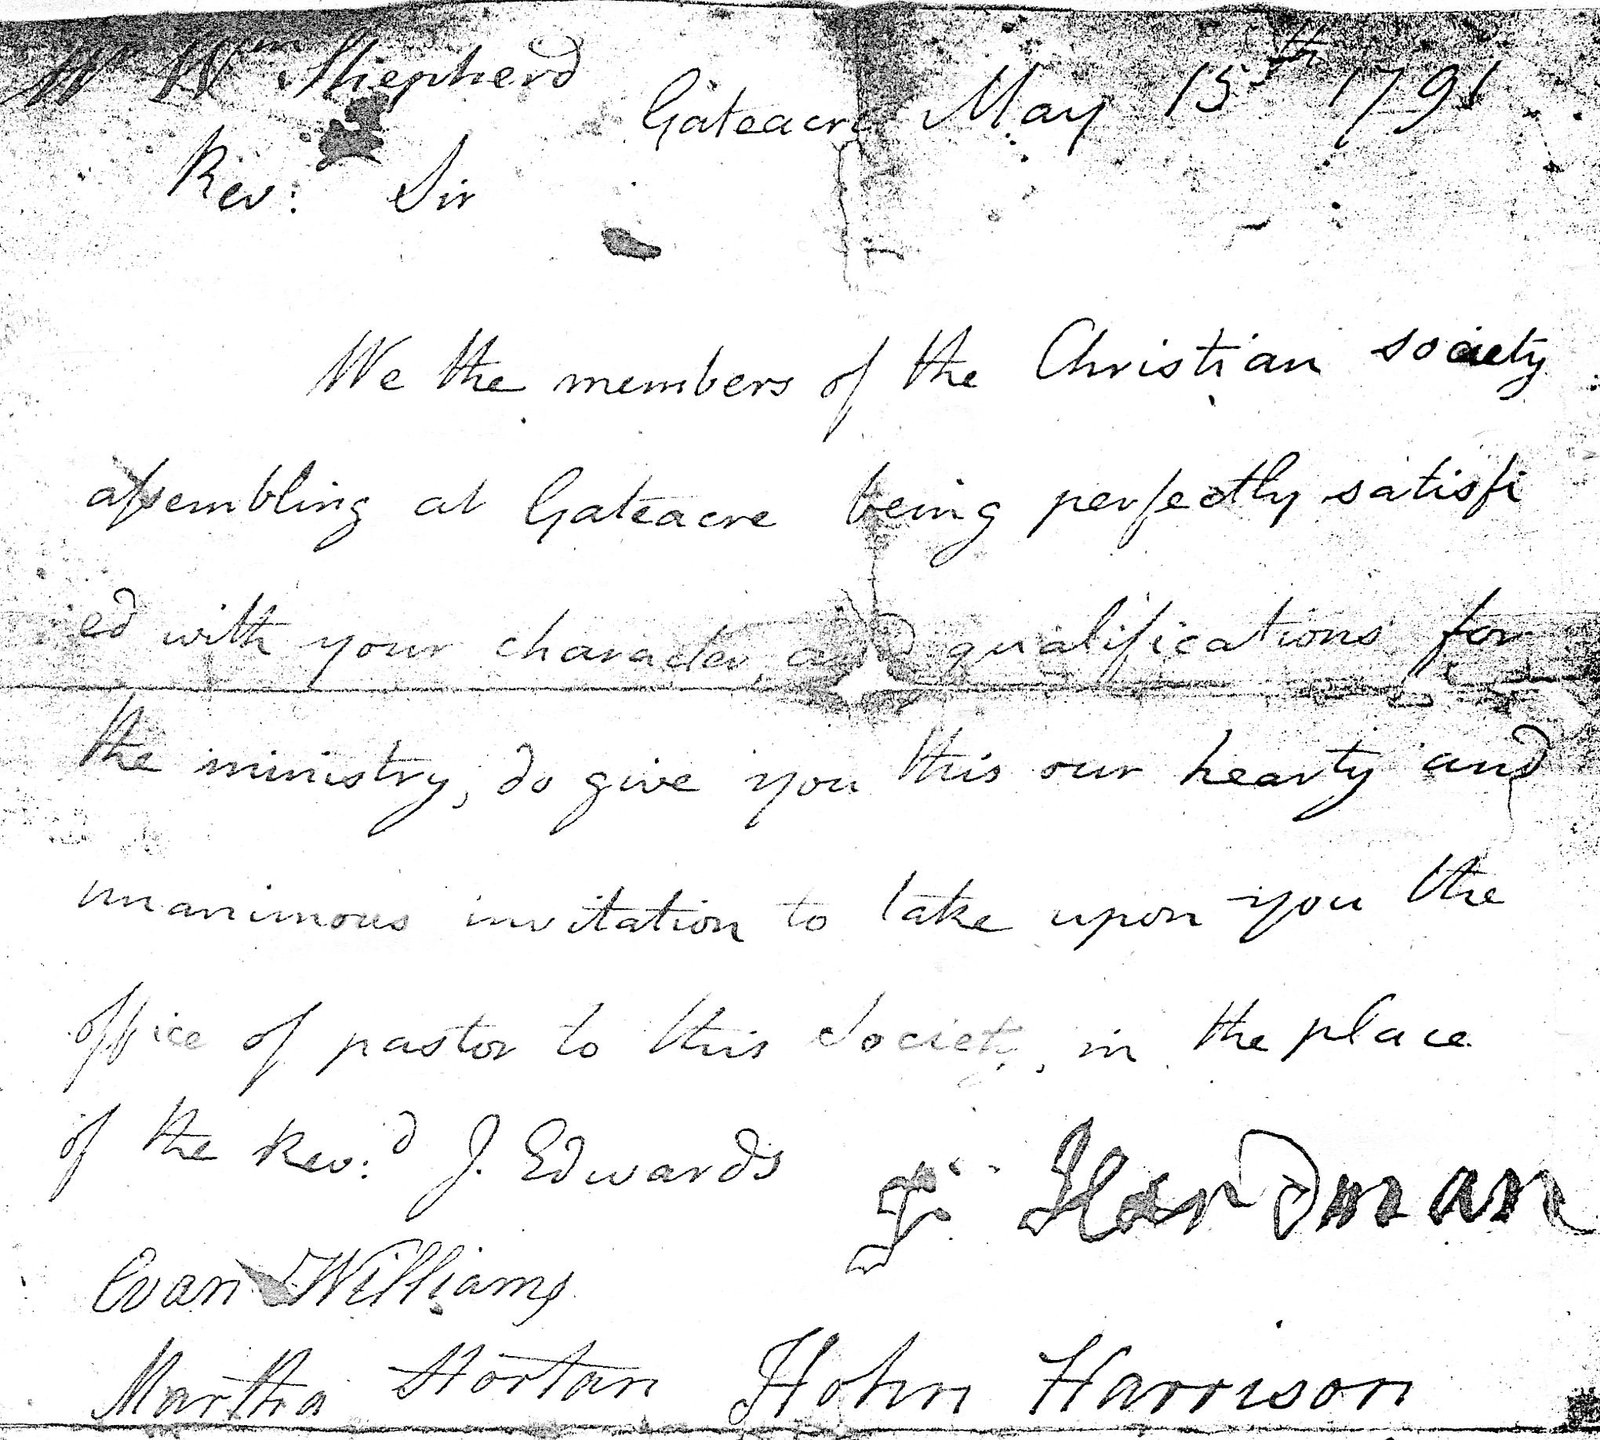 Mr Wm Shepherd
Gateacre May 15th 1791
Rev: Sir
We the members of the Christian society
assembling at Gateacre being perfectly satisfi
ed with your character, and qualifications for
the ministry, do give you this our hearty and
unanimous invitation to take upon you the
office of pastor to this Society, in the place
of the Rev:d J. Edwards
Hardman
Evan Williams
Martha Hortan John Harrison